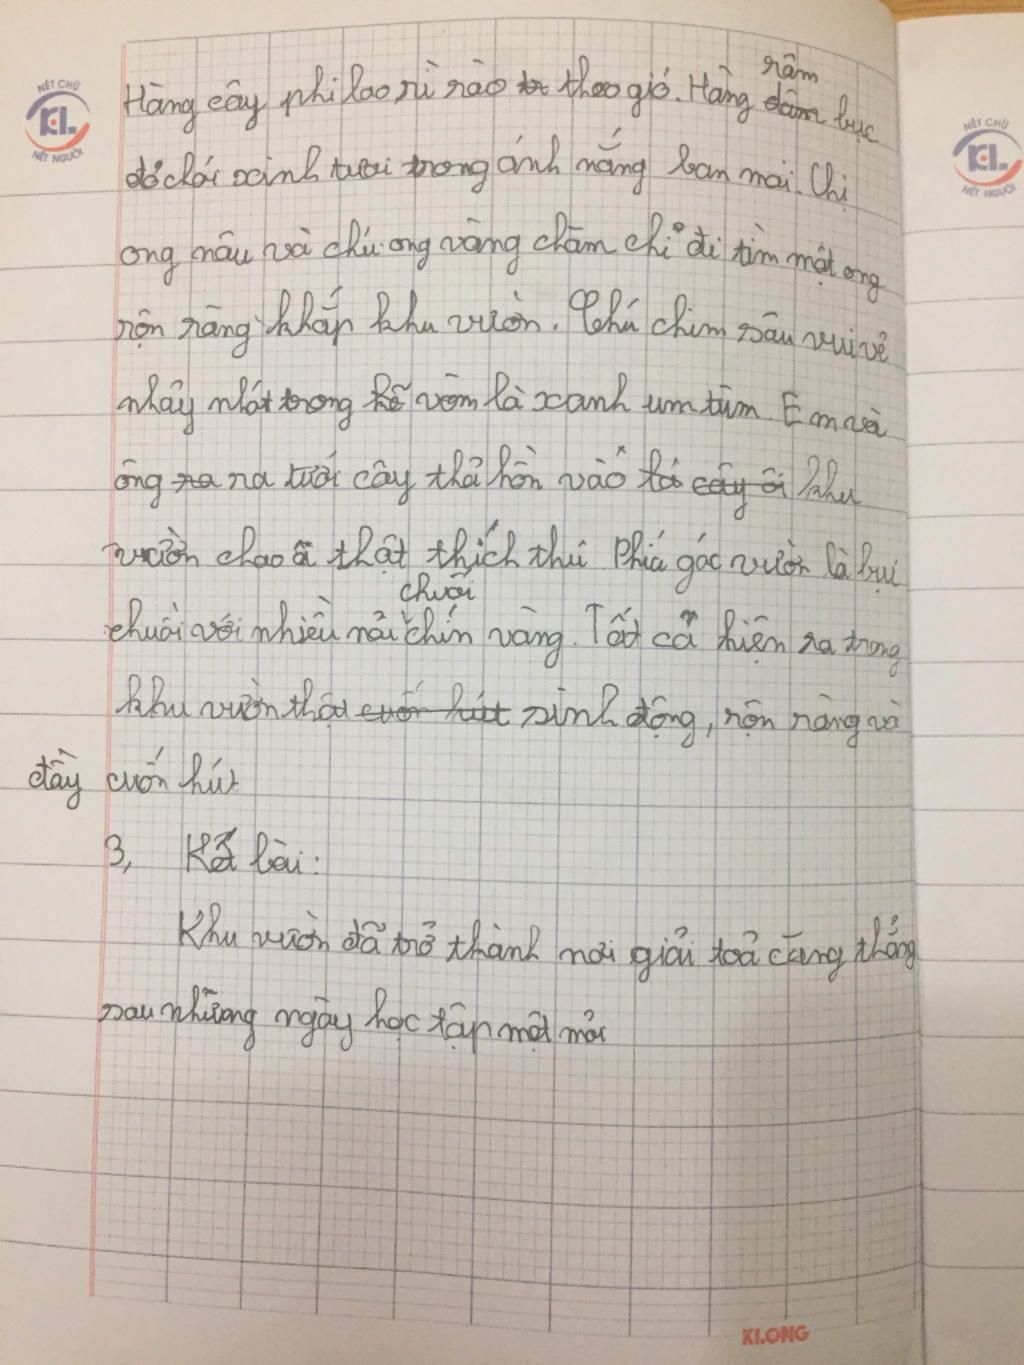 NÉT CHỮ
KL
NẾT NGƯỜI
NÉT CHỮ
KL
NẾT NGƯỜI
Hàng cây phi lao rì rào theo gió. Hàng râm bục
đỏ chói xinh tươi trong ánh nắng ban mai. Chị
ong nâu và chú ong vàng chăm chỉ đi tìm mật ong
rộn ràng khắp khu vườn. Chú chim sâu vui vẻ
nhảy nhót trong vòm lá xanh um tùm. Em và
ông ra tưới cây thả hồn vào khu
vườn chao ôi thật thích thú Phiá góc vườn là bụi
chuôi với nhiều nải chuối chín vàng. Tất cả hiện ra trong
khu vườn thật sinh động, rộn ràng và
đầy cuốn hút
3, Kết bài:
Khu vườn đã trở thành nơi giải toả căng thẳng
sau những ngày học tập mệt mỏi
KLONG